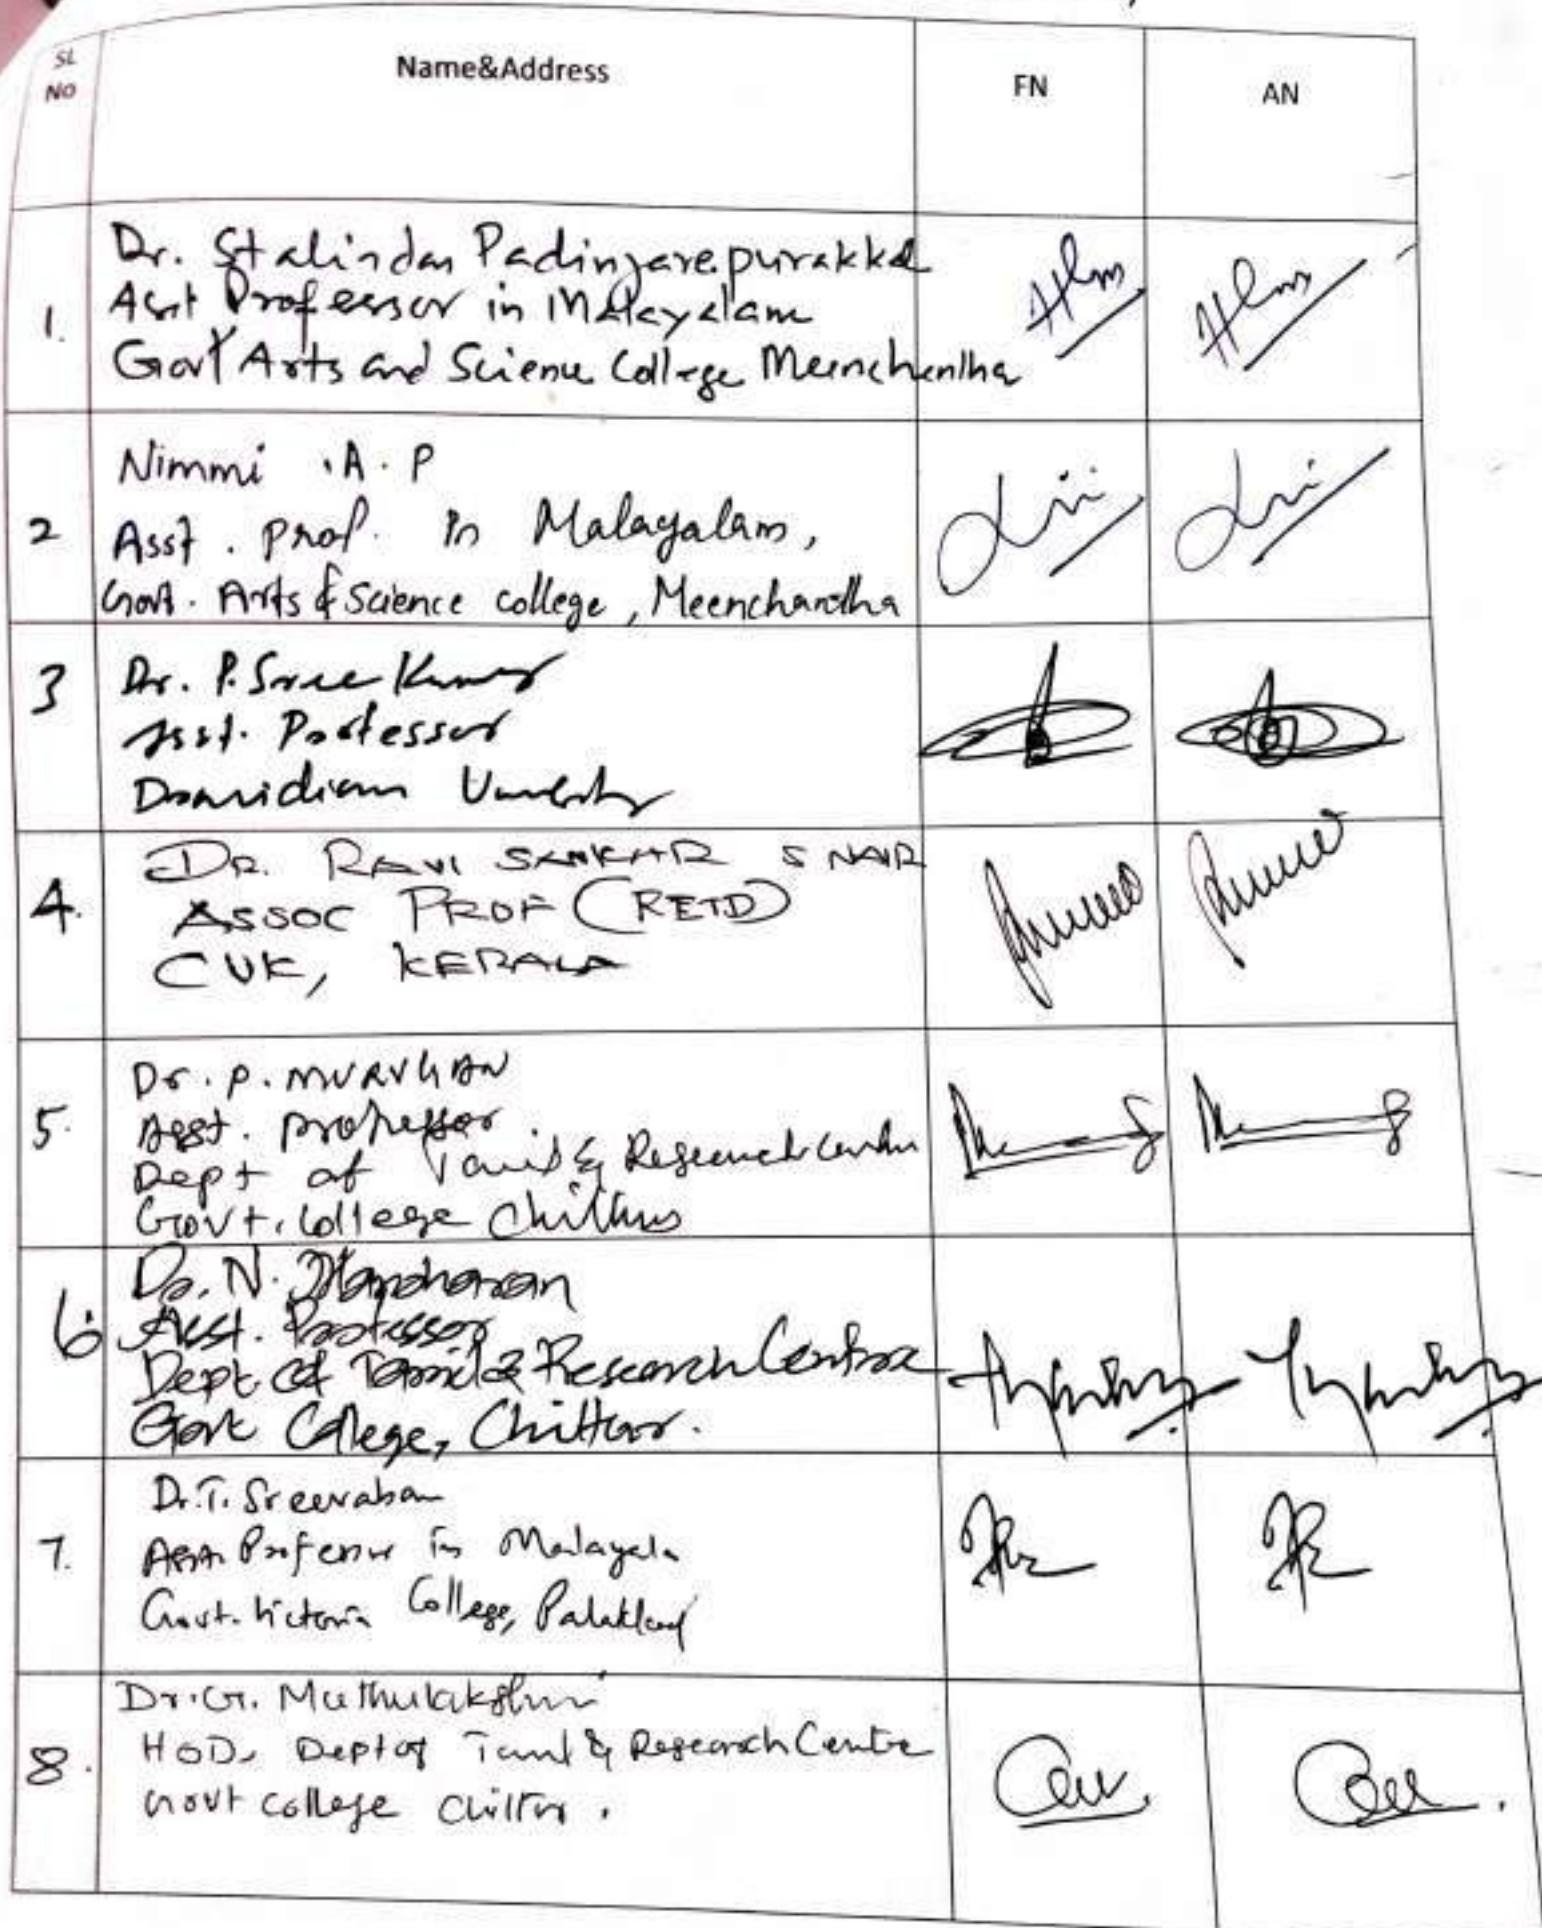 SL No
Name&Address
FN
AN
1.
Dr. Stalindas Padinjarepurakkal
Asst Professor in Malayalam
Govt Arts and Science College Meenchantha
2
Nimmi .A.P
Asst. Prof. in Malayalam,
Govt. Arts & Science college, Meenchandha
3
Dr. P. Sree Kumar
Asst. Professor
Dravidian University
4.
DR. RAVI SANKAR S NAIR
ASSOC PROF (RETD)
CUK, KERALA
5.
Dr. P. MURUGAN
Asst. professor.
Dept of Tamil & Research Centre
Govt. College Chittur
6.
Dr. N.
Asst. Professor
Dept of Tamil & Research Centre
Govt College, Chittur.
7.
Dr. T. Sreevalsan
Asst. Professor in Malayala
Govt. Victoria College, Palakkad
8.
Dr. G. Muthulakshmi
HOD, Dept of Tamil & Research Centre
Govt college Chittur.